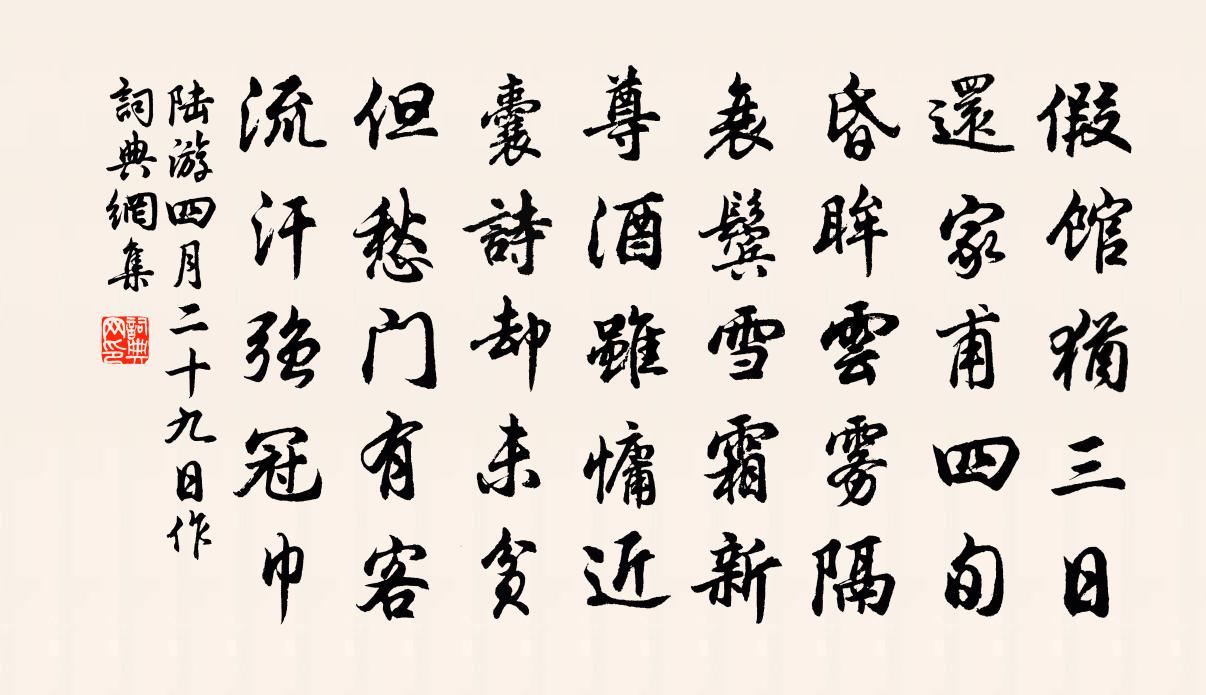 假館猶三日
還家甫四旬
昏眸雲雾隔
衰鬢雪霜新
尊酒雖慵近
囊詩却未貧
但愁门有客
流汗强冠巾
陆游四月二十九日作
詞典網集
詞典网印